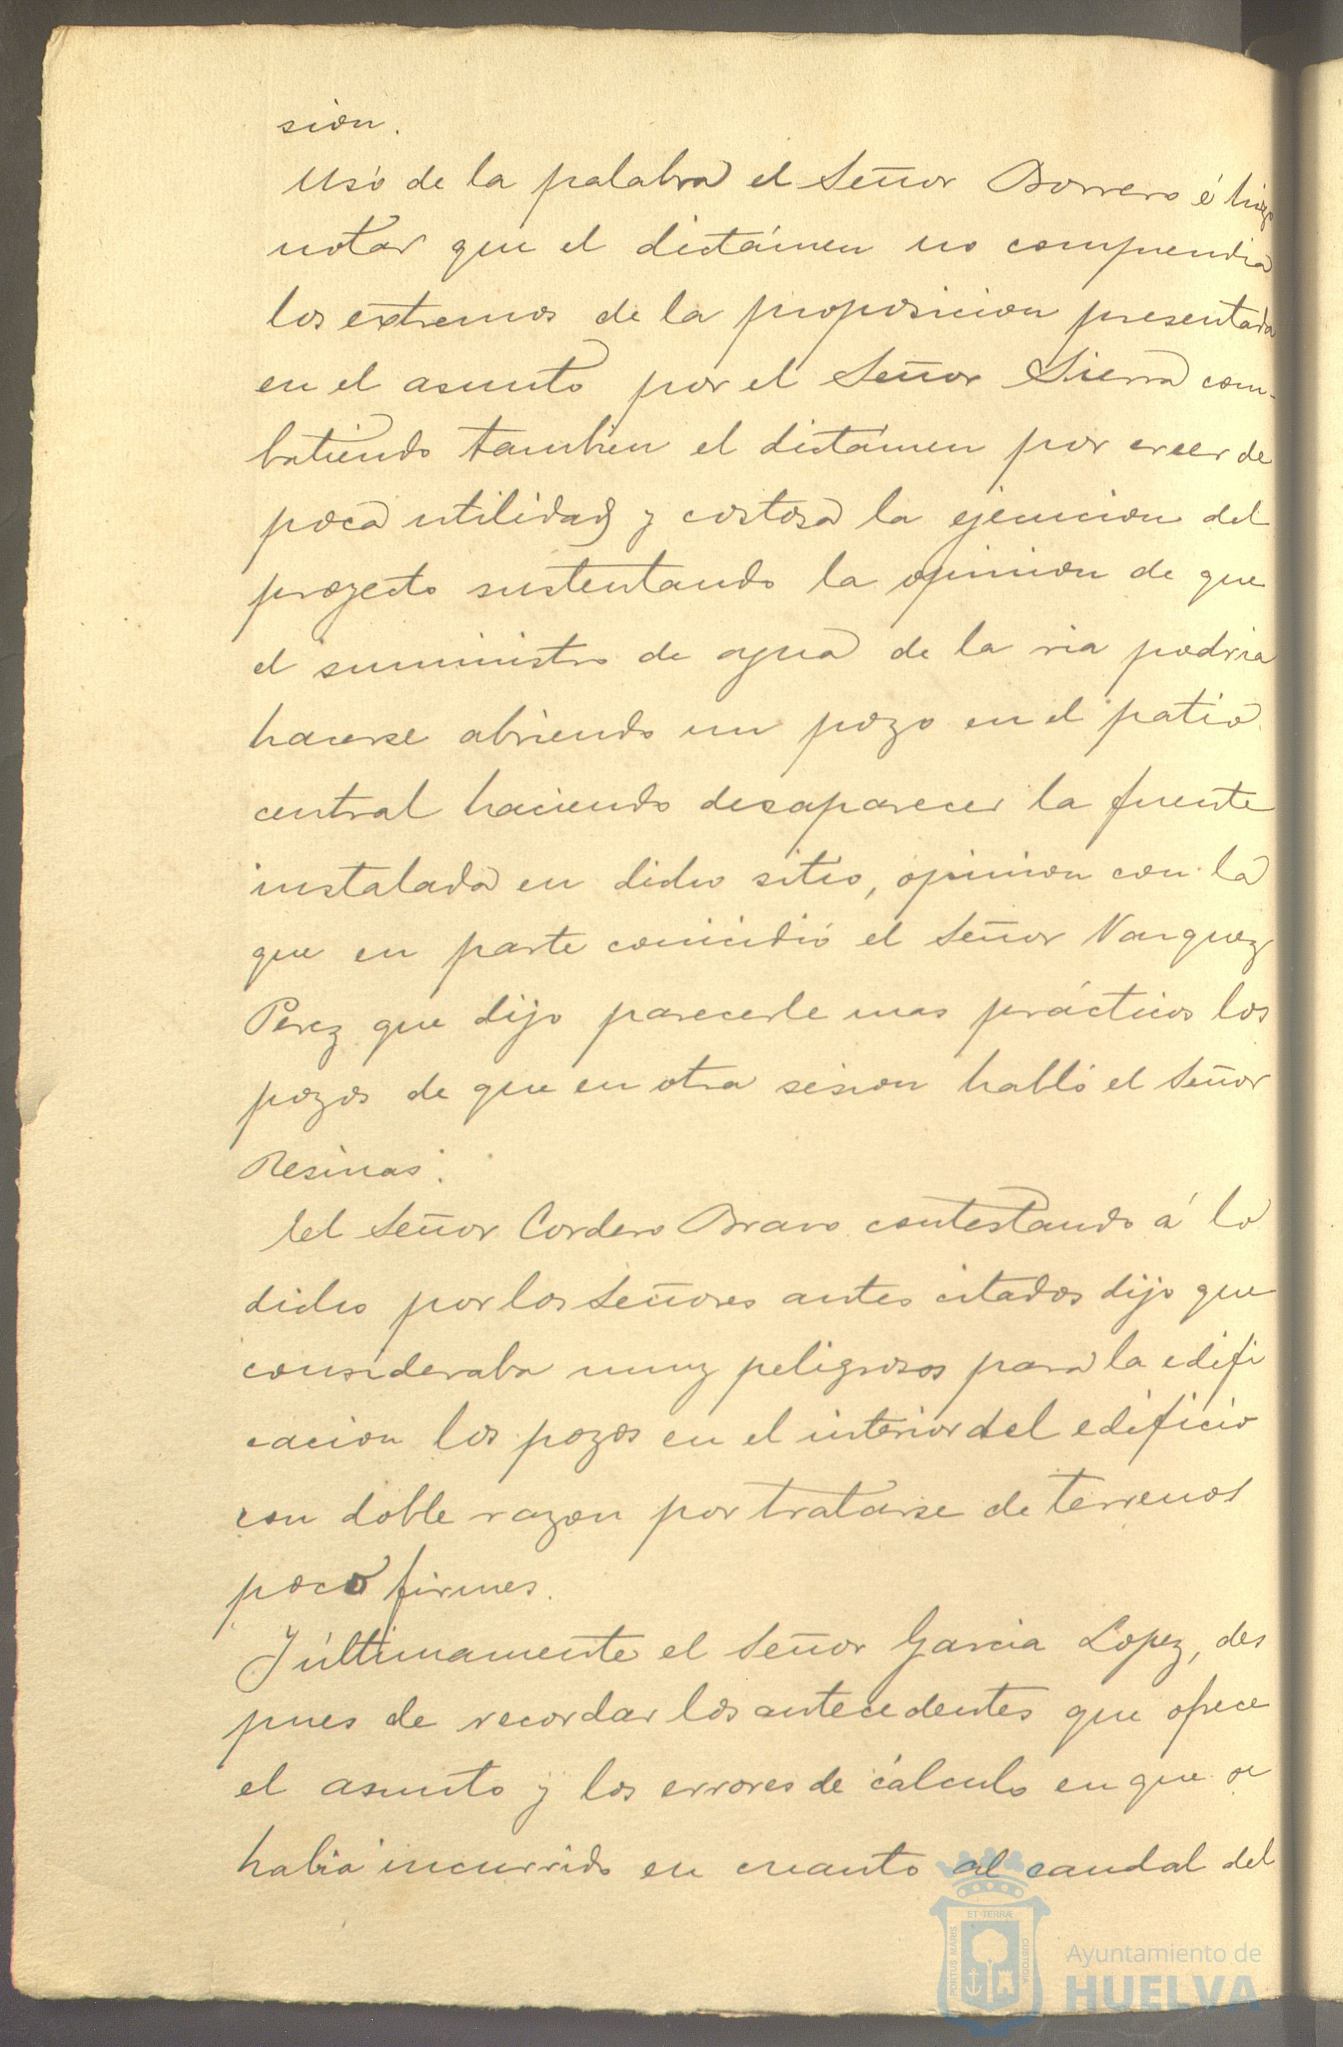 sion.
Usó de la palabra el Señor Borrero é hizo
notar que el dictámen no comprendia
los extremos de la proposicion presentada
en el asunto por el Señor Sierra com-
batiendo tambien el dictámen por creer de
poca utilidad y costosa la ejecucion del
proyecto sustentando la opinion de que
el suministro de agua de la ria podria
hacerse abriendo un pozo en el patio
central haciendo desaparecer la fuente
instalada en dicho sitio, opinion con la
que en parte coincidió el Señor Vazquez
Perez que dijo parecerle mas prácticos los
pozos de que en otra sesion habló el Señor
Resinas.
El Señor Cordero Bravo contestando á lo
dicho por los Señores antes citados dijo que
consideraba muy peligrosos para la edifi
cacion los pozos en el interior del edificio
con doble razon por tratarse de terrenos
poco firmes.
Y últimamente el Señor Garcia Lopez, des
pues de recordar los antecedentes que ofrece
el asunto y los errores de cálculo en que se
habia incurrido en cuanto al caudal del
PORTUS MARIS ET TERRÆ CUSTODIA
Ayuntamiento de
HUELVA